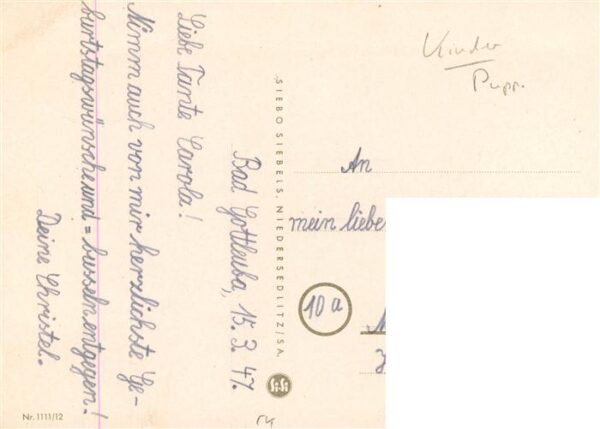 Bad Gottleuba, 15. 3. 47.
Liebe Tante Carola!
Nimm auch von mir herzlichste Ge-
burtstagswünsche und = busseln entgegen!
Deine Christel.
SIEBO SIEBELS, NIEDERSEDLITZ/SA.
Nr. 1111/12
Kinder
Pupp.
An
mein liebe
10a